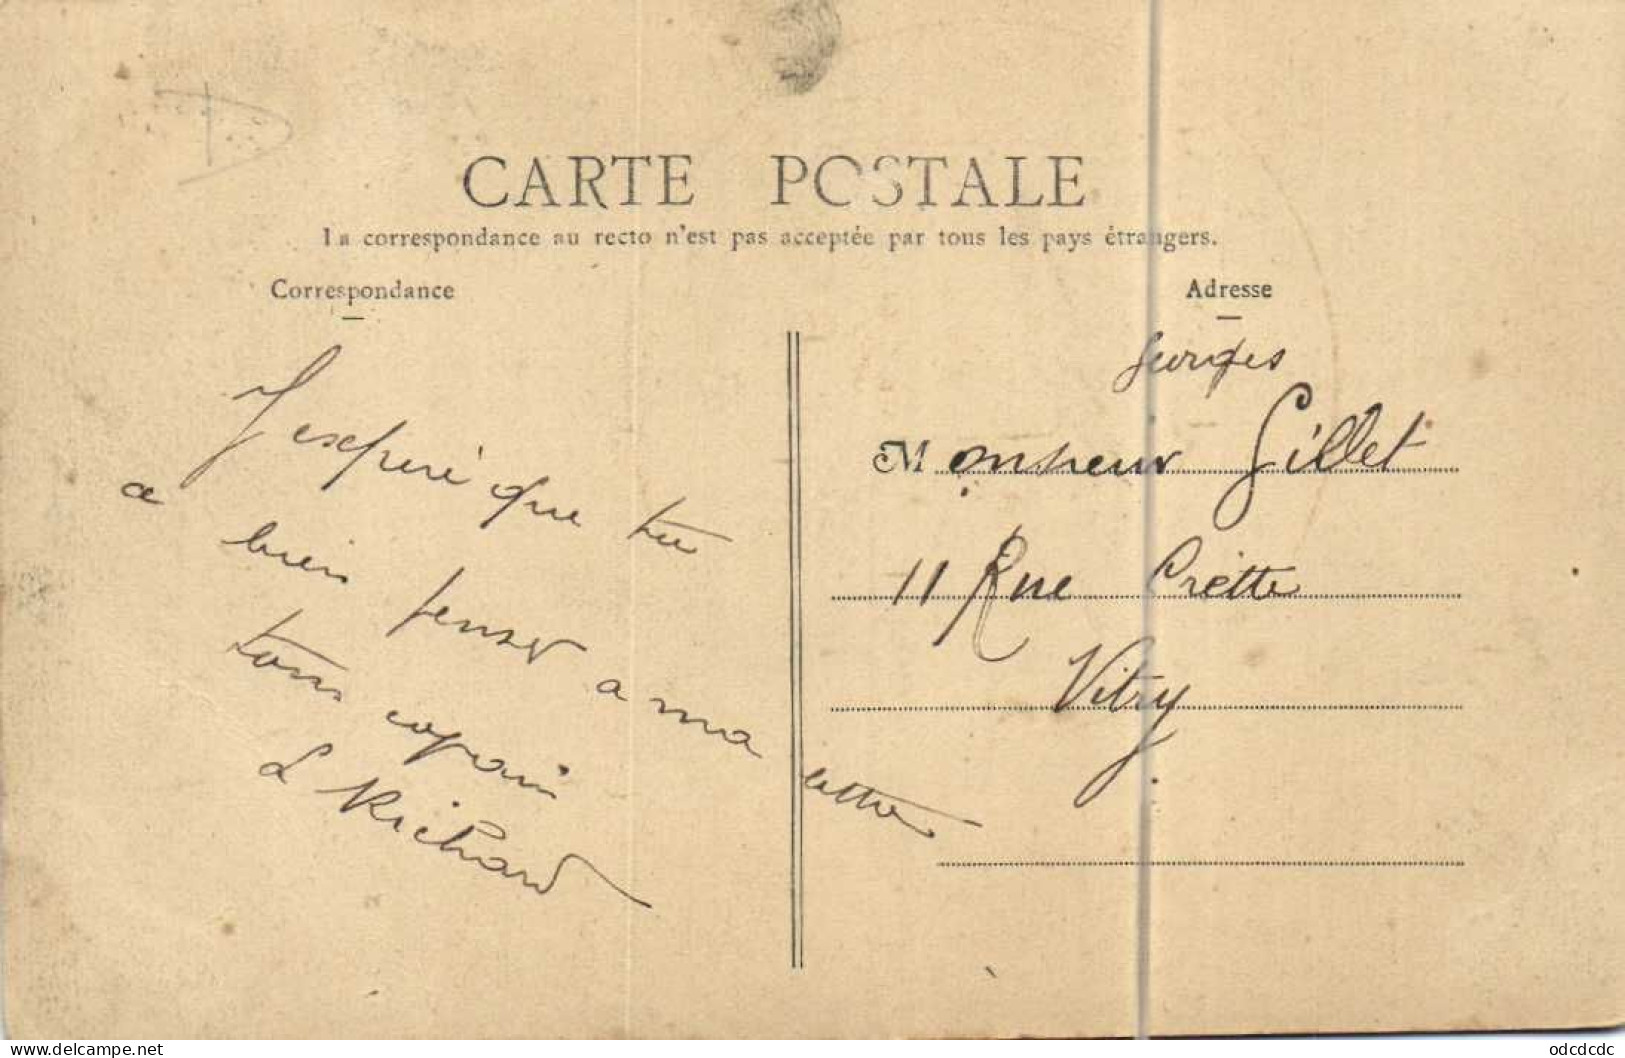 CARTE POSTALE
La correspondance au recto n'est pas acceptée par tous les pays étrangers.
Correspondance
J'esperé que tu
a bien penser a ma lettre
ton copain
L Richard
Adresse
Georges
Monsieur Gillet
11 Rue Crètte
Vitry
delcampe.net
odcdcdc